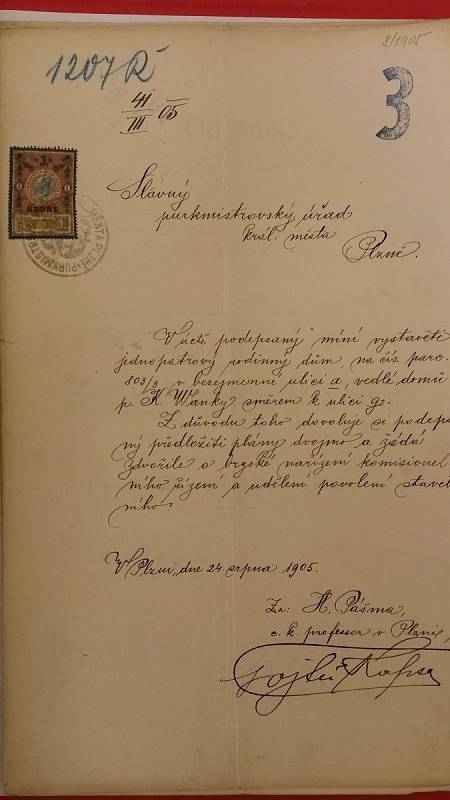 8/1905
1207 R
3
41
III 05
1
KRONE
Slavný
purkmistrovský úřad
král. města
Plzně.
V úctě podepsaný míní vystavěti
jednopatrový rodinný dům, na čís. parc.
803/3 v bezejmenné ulici a, vedlé domů
p. K. Wanky směrem k ulici g.
Z důvodu toho dovoluje si podepsa
ný předložiti plány dvojmo a žádá
zdvořile o brzské nařízení komisionel
ního řízení a udělení povolení stavel
ního.
V Plzni, dne 24 srpna 1905.
Za: H. Pašma,
c. k. professor v Plzni,